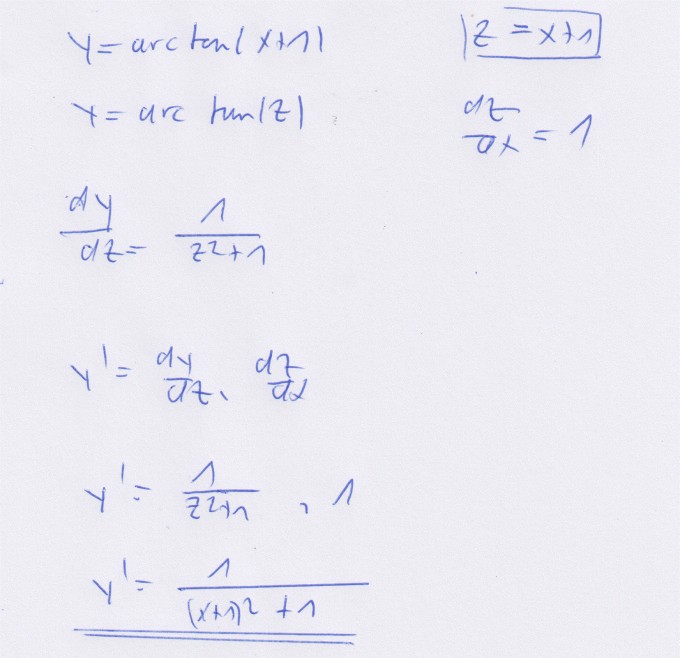 y = arc tan(x+1)    |z = x+1|
y = arc tan(z)    dz/dx = 1
dy/dz = 1/(z²+1)
y' = dy/dz · dz/dx
y' = 1/(z²+1) · 1
y' = 1/((x+1)²+1)